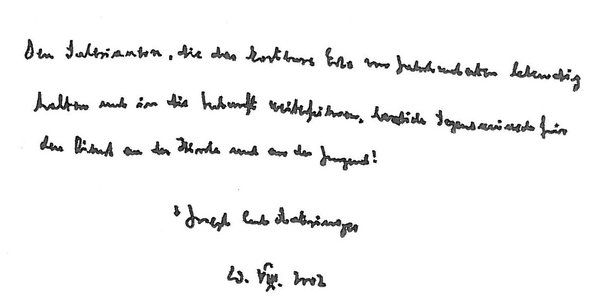 Den Salesianern, die das kostbare Erbe von Jahrhunderten lebendig
halten und in die Zukunft weiterführen, herzliche Segenswünsche für
den Dienst an der Kirche und an der Jugend!
+ Joseph Card. Ratzinger
20. VIII. 2002